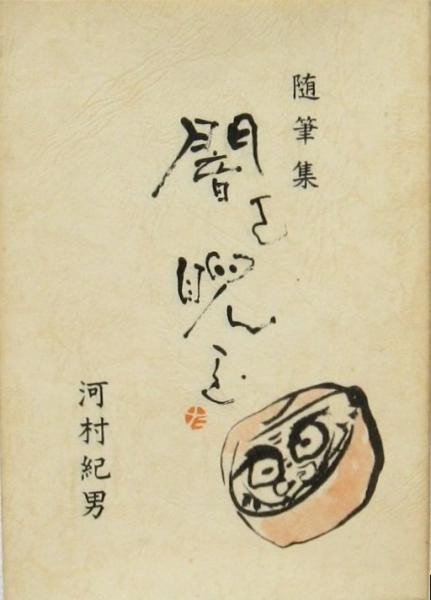 随筆集
闇を睨む
河村紀男